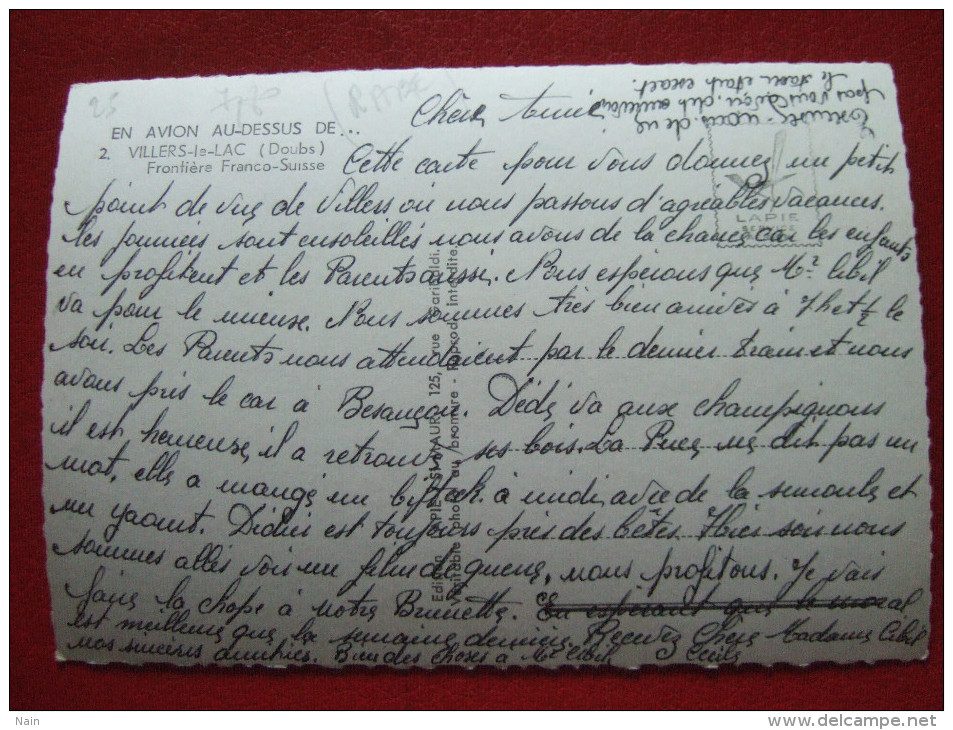 25
(RARE)
EN AVION AU-DESSUS DE...
2. VILLERS-le-LAC (Doubs)
Frontière Franco-Suisse
LAPIE
Chère Amie
Excusez-nous de ne
pas vous
le était exact.
Cette carte pour vous donner un petit
point de vue de Villers où nous passons d'agréables vacances.
les journées sont ensoleillés nous avons de la chance car les enfants
en profitent et les Parents aussi. Nous espérons que Mr Cibil
va pour le mieux. Nous sommes très bien arrivés à 7h et ½ le
soir. Les Parents nous attendaient par le dernier train et nous
avons pris le car à Besançon. Dédé va aux champignons
il est heureux, il a retrouvé ses bois. La Puce ne dit pas un
mot, elle a mangé un bifteck à midi avec de la semoule et
un yaourt. Didier est toujours près des bêtes. Hier soir nous
sommes allés voir un film de guerre, nous profitons. Je vais
faire la chope à notre Brunette. En espérant que le moral
est meilleur que la semaine dernière. Recevez Chère Madame Cibil
nos sincères amitiés. Bien des choses à Mr Cibil
Cecile
Edition LAPIE ST-MAUR 125, rue Garibaldi.
Véritable photo au bromure - Reprod. interdite.
Nain
www.delcampe.net